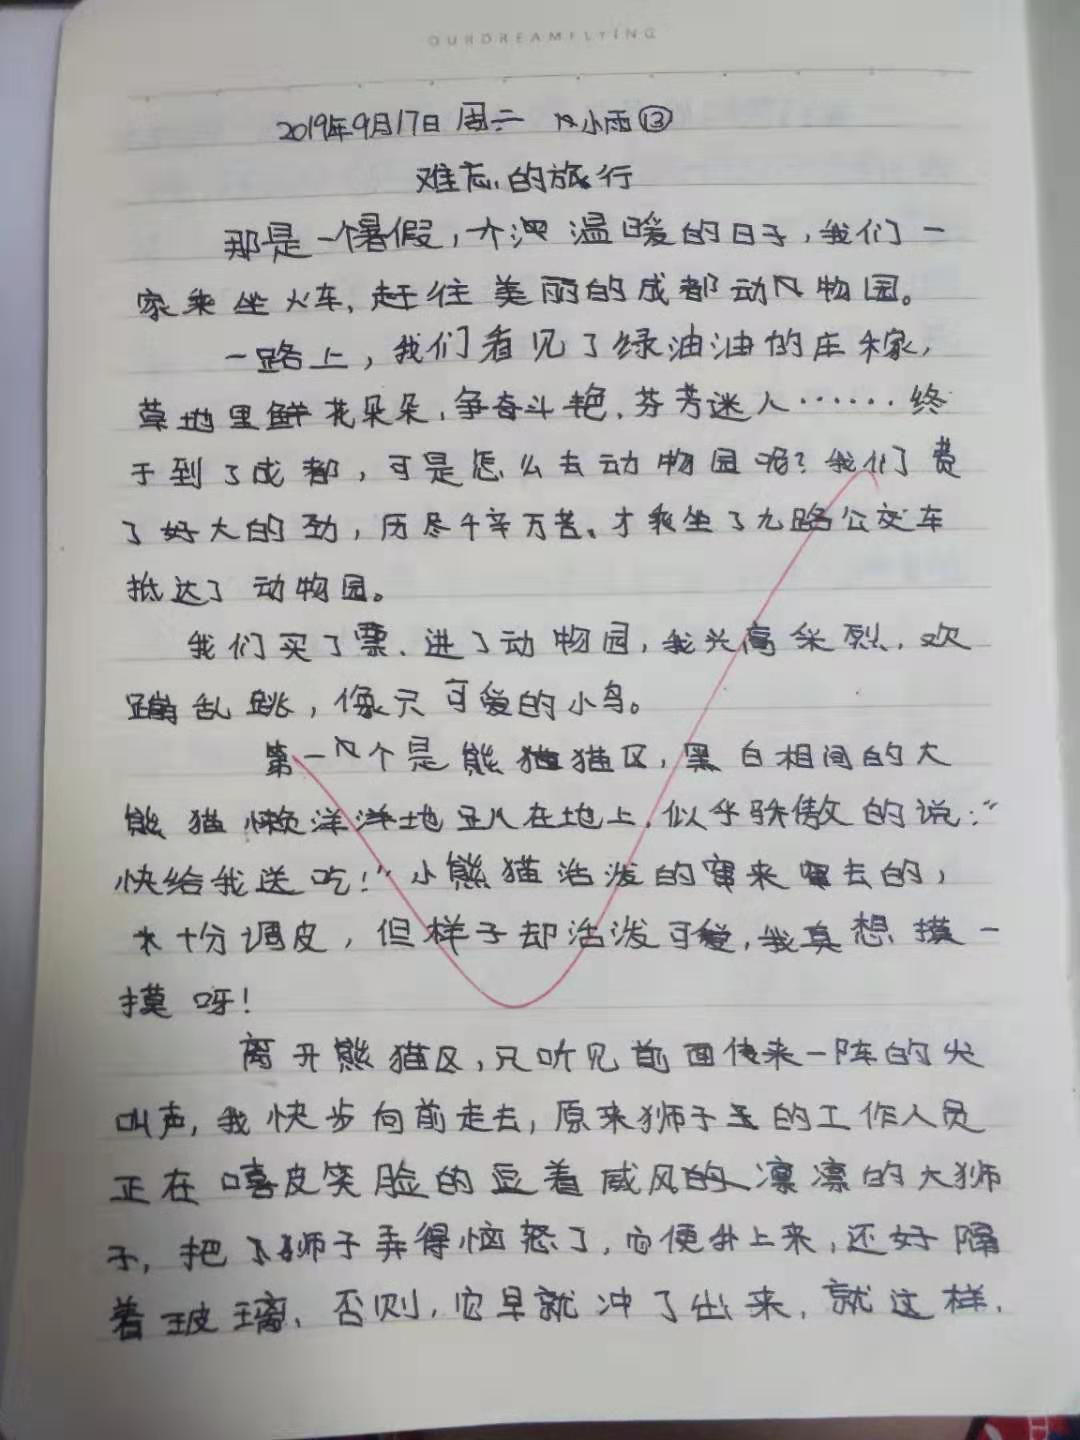 OURDREAMFLYING
2019年9月17日 周二 小雨⑬
难忘的旅行
那是一个暑假，温暖的日子，我们一
家乘坐火车，赶往美丽的成都动物园。
一路上，我们看见了绿油油的庄稼，
草地里鲜花朵朵，争奋斗艳，芬芳迷人……终
于到了成都，可是怎么去动物园呢？我们费
了好大的劲，历尽千辛万苦、才乘坐了九路公交车
抵达了动物园。
我们买了票、进了动物园，我兴高采烈，欢
蹦乱跳，像只可爱的小鸟。
第一个是熊猫区，黑白相间的大
熊猫懒洋洋地趴在地上，似乎骄傲的说：“
快给我送吃！”小熊猫活泼的窜来窜去的，
十分调皮，但样子却活泼可爱，我真想摸一
摸呀！
离开熊猫区，只听见前面传来一阵的尖
叫声，我快步向前走去，原来狮子的工作人员
正在嘻皮笑脸的逗着威风凛凛的大狮
子，把狮子弄得恼怒了，它便扑上来，还好隔
着玻璃、否则，它早就冲了出来，就这样，